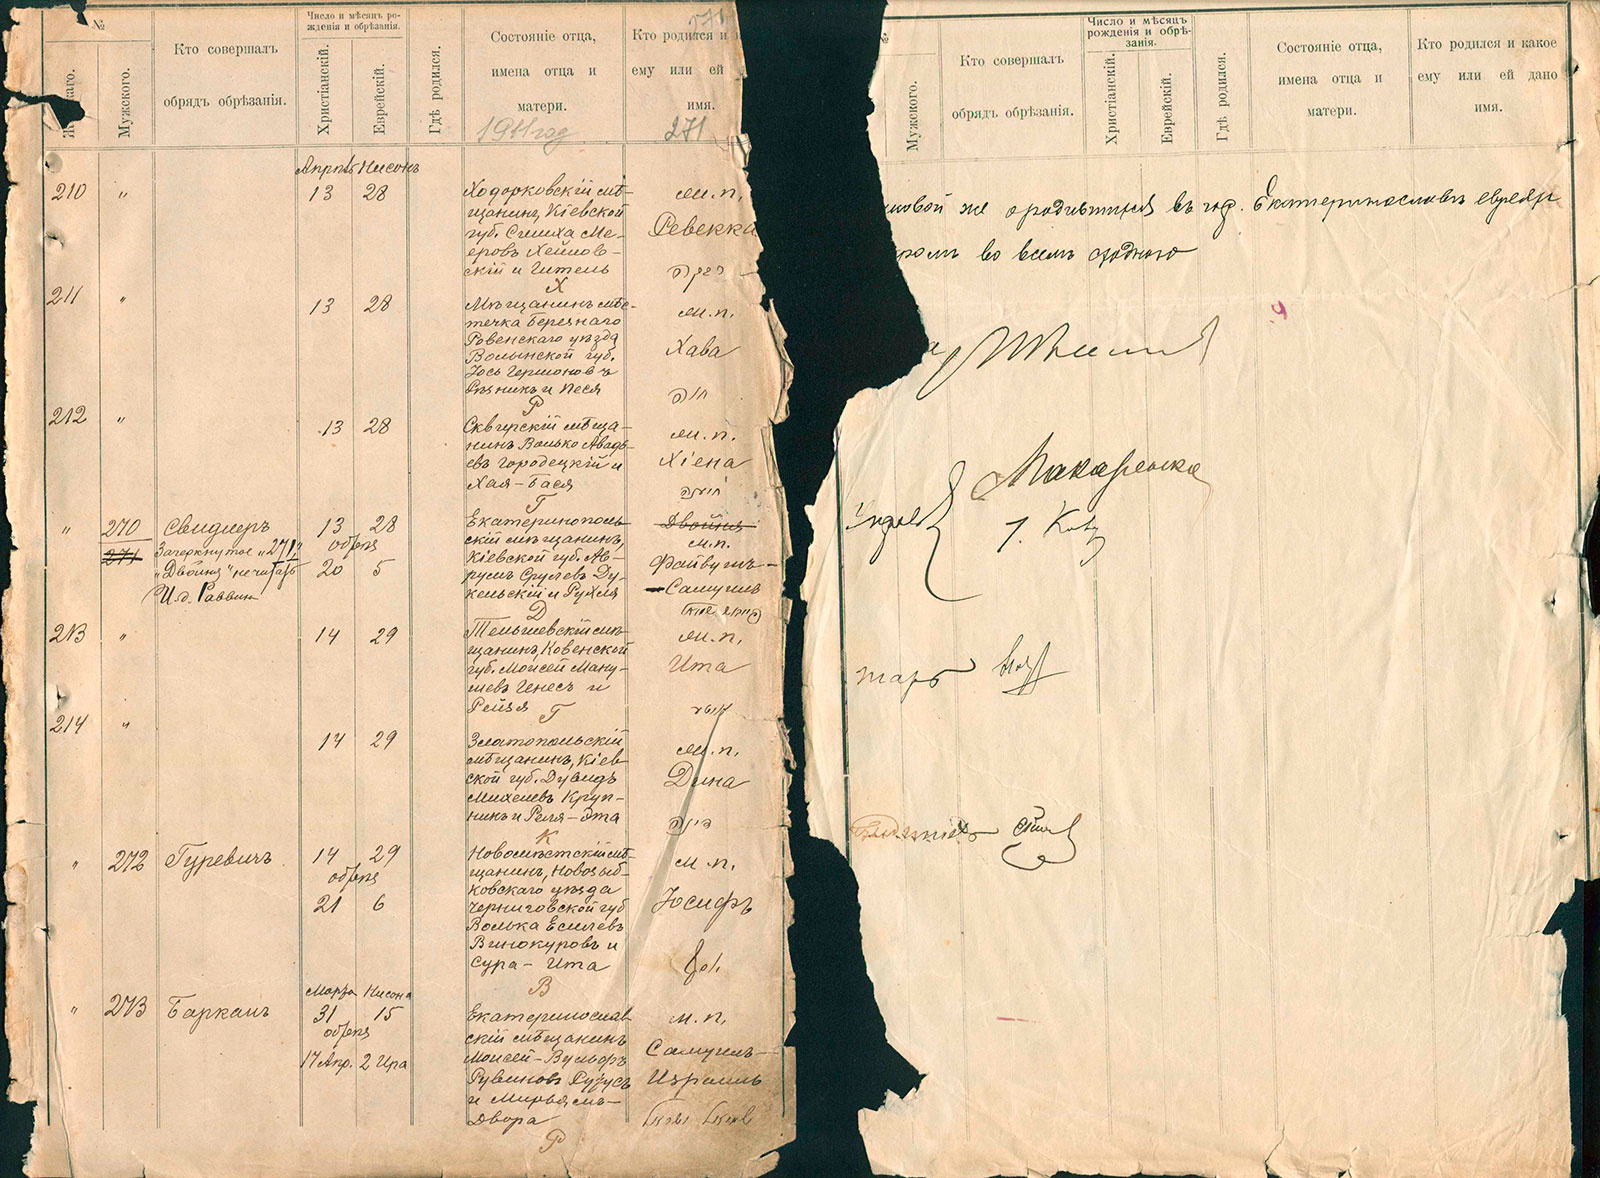 №
Кто совершалъ
обрядъ обрѣзанія.
Число и мѣсяцъ ро-
жденія и обрѣзанія.
Мужского.
Христіанскій.
Еврейскій.
Гдѣ родился.
Состояніе отца,
имена отца и
матери.
Кто родился и
ему или ей
имя.
1911 год
271
Апрѣль Нисонъ
210 " 13 28
Ходорковскій мѣ-
щанинъ, Кіевской
губ. Симха Ме-
еровъ Хейнов-
скій и Гитель
Х
м. п.
Ревекка
רבקה
211 " 13 28
Мѣщанинъ мѣс-
течка Березнаго
Ровенскаго уѣзда
Волынской губ.
Іось Гершоновъ
Рѣзникъ и Песя
Р
м. п.
Хава
חוה
212 " 13 28
Сквирскій мѣща-
нинъ Волько Авадь-
евъ Городецкій и
Хая-Бася
Г
м. п.
Хіена
" 270 Свидлеръ 13 28
271
Зачеркнутое "271",
"Двойня" не читать
И.д. Раввин
обрѣз
20 5
Екатеринополь-
скій мѣщанинъ,
Кіевской губ. Ав-
румъ Сруловъ Ду-
кельскій и Рухля
Д
Двойня
м. п.
Файвушъ-
Самуилъ
213 " 14 29
Тельшевскій мѣ-
щанинъ, Ковенской
губ. Моисей Ману-
шевъ Генесъ и
Рейзя
Г
м. п.
Ита
214 " 14 29
Златопольскій
мѣщанинъ, Кіев-
ской губ. Дувидъ
Михелевъ Круп-
никъ и Реля-Эта
К
м. п.
Дина
דינה
" 272 Гуревичъ 14 29
обрѣз
21 6
Новомѣстскій мѣ-
щанинъ, Новозыб-
ковскаго уѣзда
Черниговской губ
Волька Есилевъ
Винокуровъ и
Сура-Ита
В
м. п.
Іосифъ
Марта Нисона
" 273 Барканъ 31 15
обрѣз
17 Апр. 2 Ира
Екатеринослав
скій мѣщанинъ
Моисей-Вульфъ
Рувиновъ
и Мирьямъ-
Двора
Р
м. п.
Самуилъ-
Израиль
№
Мужского.
Кто совершалъ
обрядъ обрѣзанія.
Число и мѣсяцъ
рожденія и обрѣ-
занія.
Христіанскій.
Еврейскій.
Гдѣ родился.
Состояніе отца,
имена отца и
матери.
Кто родился и какое
ему или ей дано
имя.
же о родившихся въ гор. Екатеринославѣ евреяхъ
во всемъ сходною
Макаренко